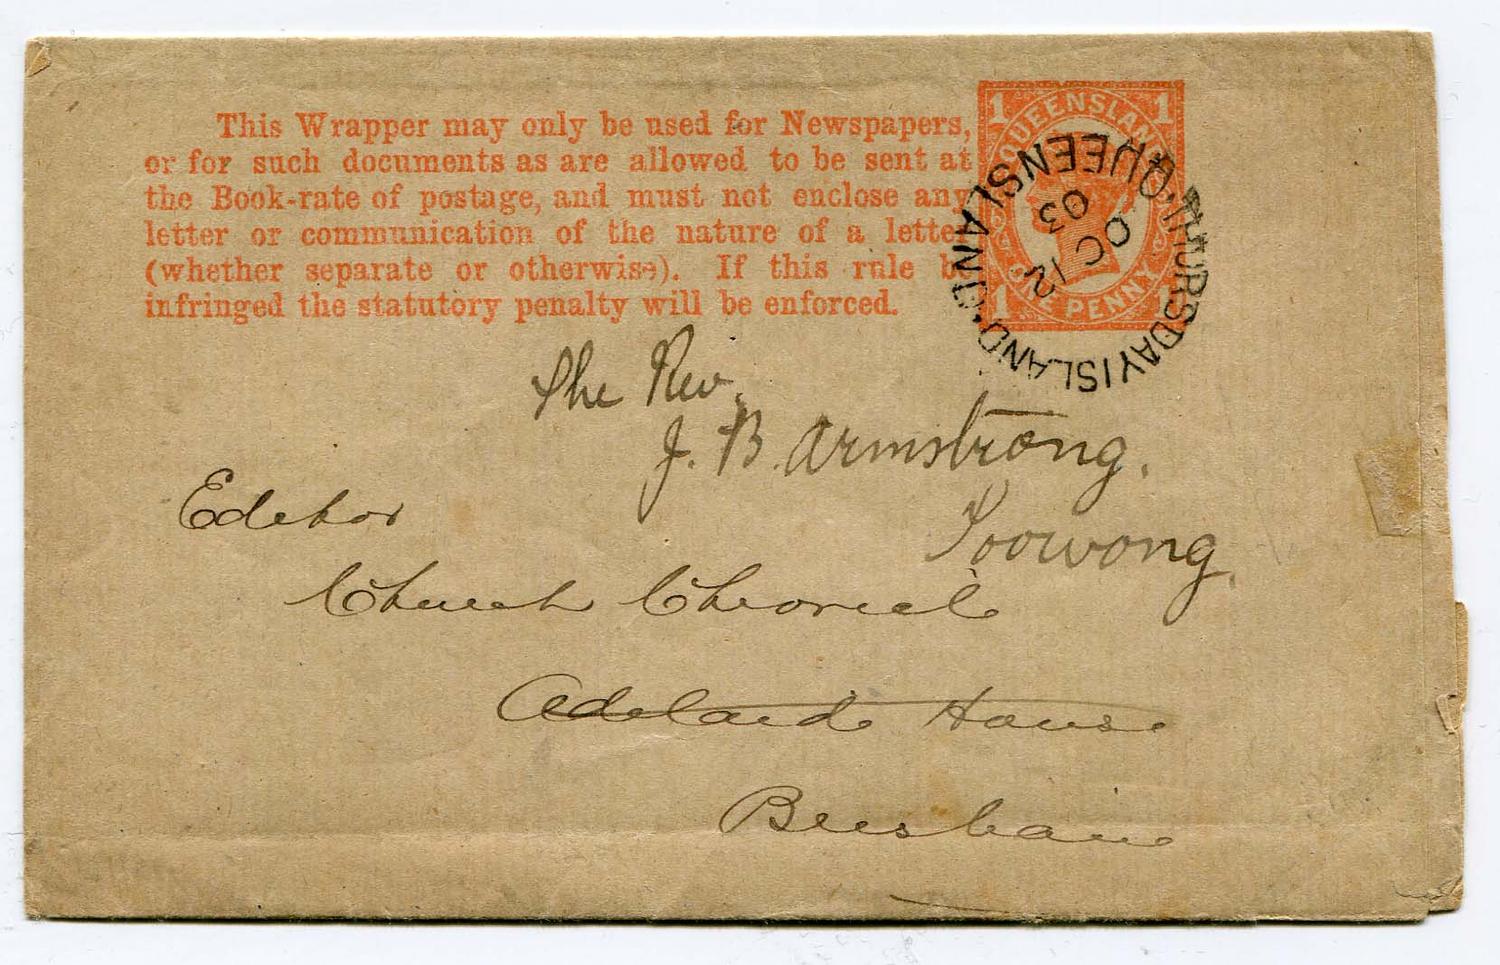 This Wrapper may only be used for Newspapers,
or for such documents as are allowed to be sent at
the Book-rate of postage, and must not enclose any
letter or communication of the nature of a letter
(whether separate or otherwise). If this rule be
infringed the statutory penalty will be enforced.
1 QUEENSLAND 1
1 ONE PENNY 1
THURSDAY ISLAND
QUEENSLAND
12
OC
03
The Rev.
J. B. Armstrong.
Toowong.
Editor
Church Chronicle
Adelaide House
Brisbane